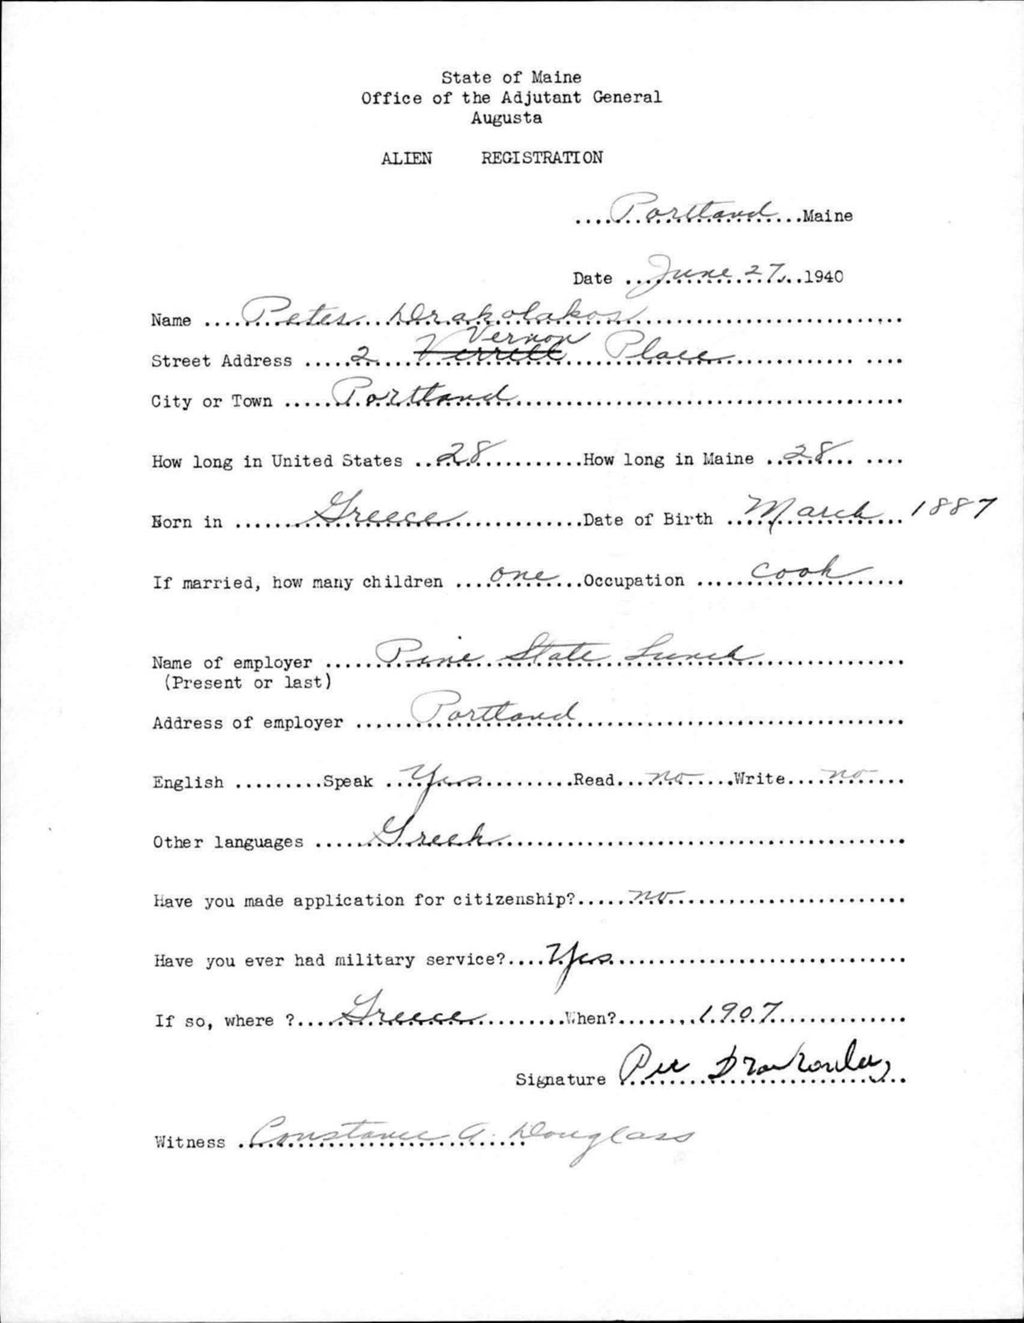 State of Maine
Office of the Adjutant General
Augusta
ALIEN REGISTRATION
....Portland...Maine
Date ...June 27,..1940
Name ....Peter Drakolakos....
Vernon
Street Address .....2 Verrill Place....
City or Town .....Portland....
How long in United States ..28...........How long in Maine ..28... ....
Born in ......Greece............Date of Birth ..March... 1887
If married, how many children ....one....Occupation .....cook....
Name of employer .....Pine State Lunch....
(Present or last)
Address of employer ......Portland....
English .........Speak ..Yes..........Read...no.....Write....no....
Other languages .....Greek....
Have you made application for citizenship?.....no....
Have you ever had military service?....Yes....
If so, where ?....Greece.........When?........1907....
Signature
Witness .Constance A. Douglass